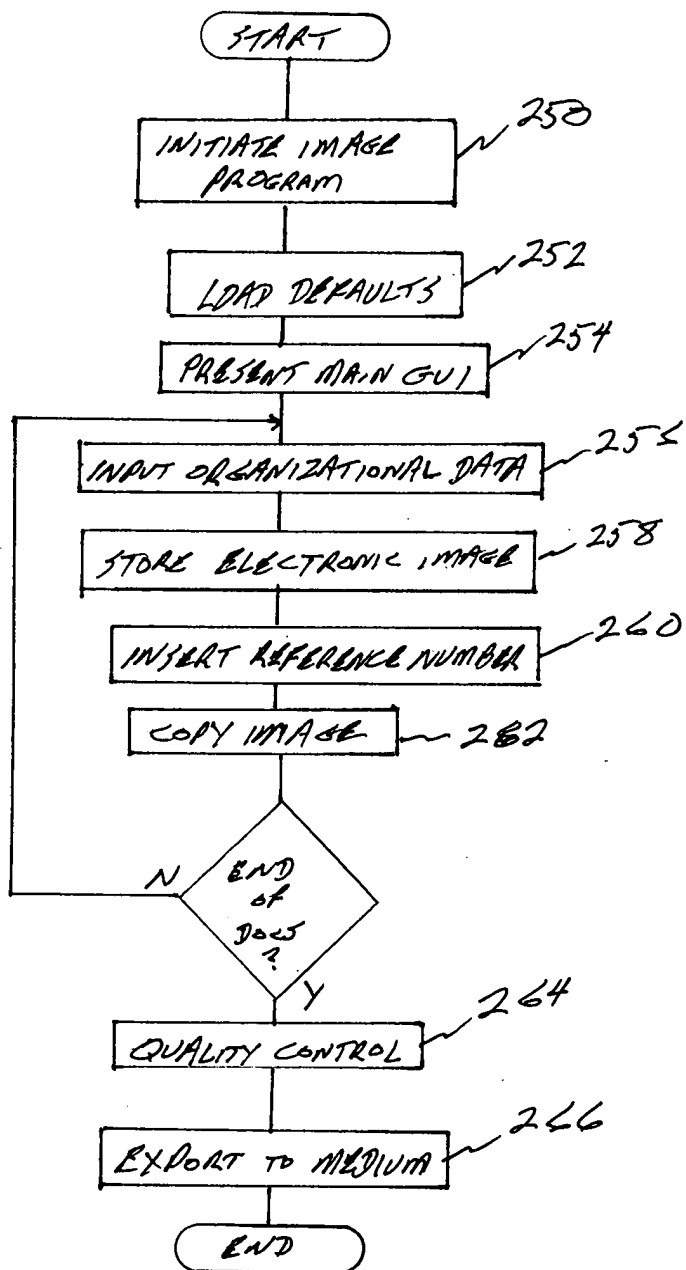 START
INITIATE IMAGE
PROGRAM
250
LOAD DEFAULTS
252
PRESENT MAIN GUI
254
INPUT ORGANIZATIONAL DATA
256
STORE ELECTRONIC IMAGE
258
INSERT REFERENCE NUMBER
260
COPY IMAGE
262
END
OF
DOCS
?
N
Y
QUALITY CONTROL
264
EXPORT TO MEDIUM
266
END